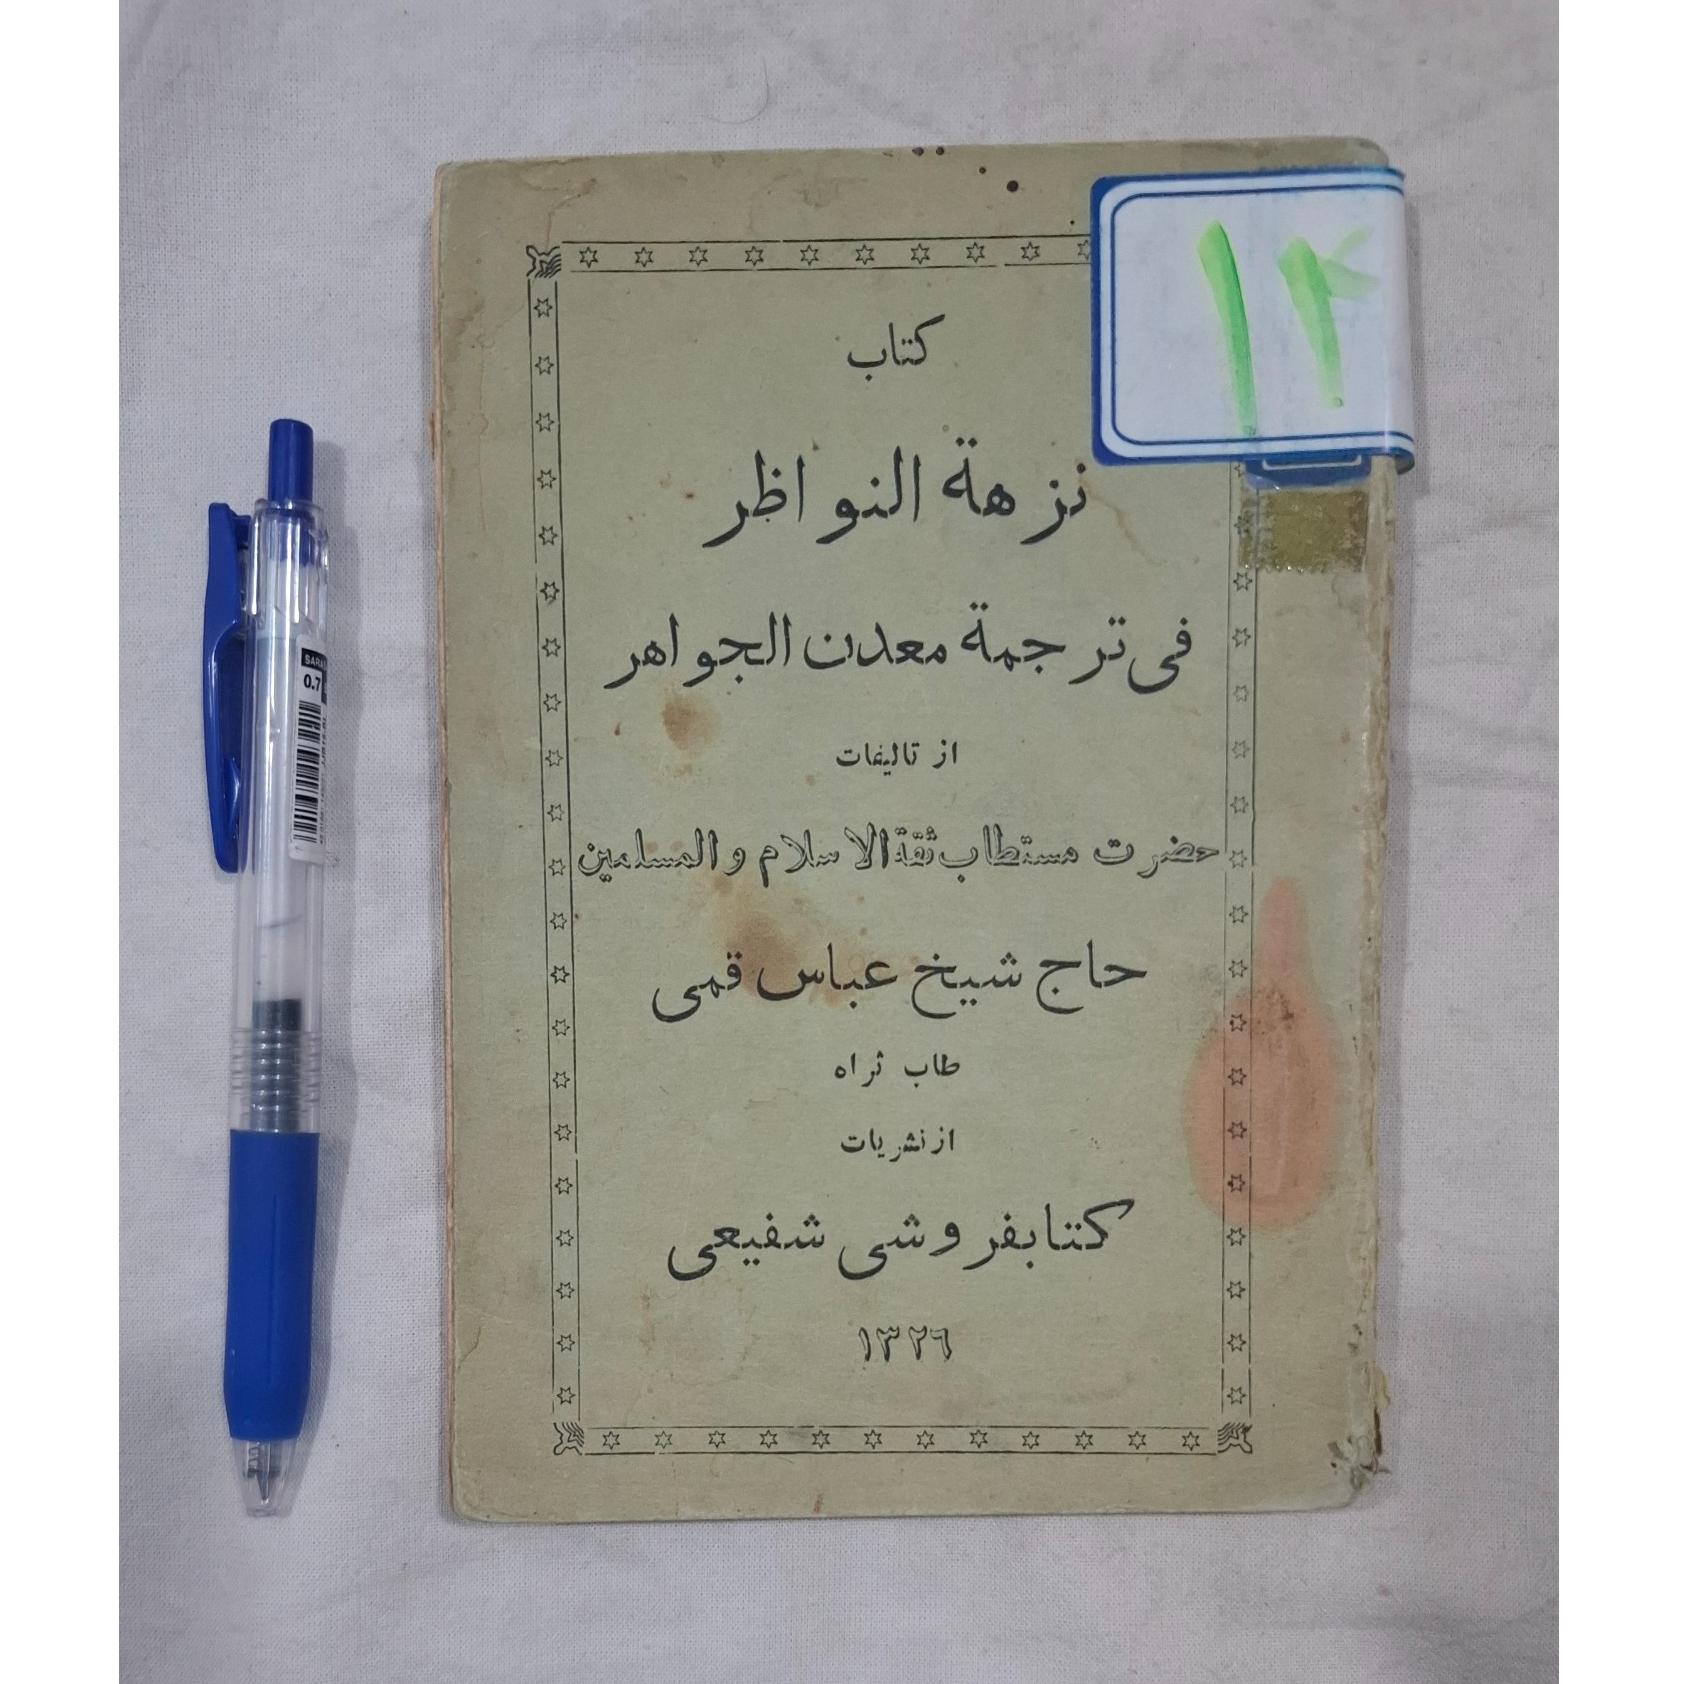 ۱۲
کتاب
نزهة النواظر
فی ترجمة معدن الجواهر
از تالیفات
حضرت مستطاب ثقة الاسلام والمسلمین
حاج شیخ عباس قمی
طاب ثراه
از نشریات
کتابفروشی شفیعی
۱۳۲۶
SARA
0.7